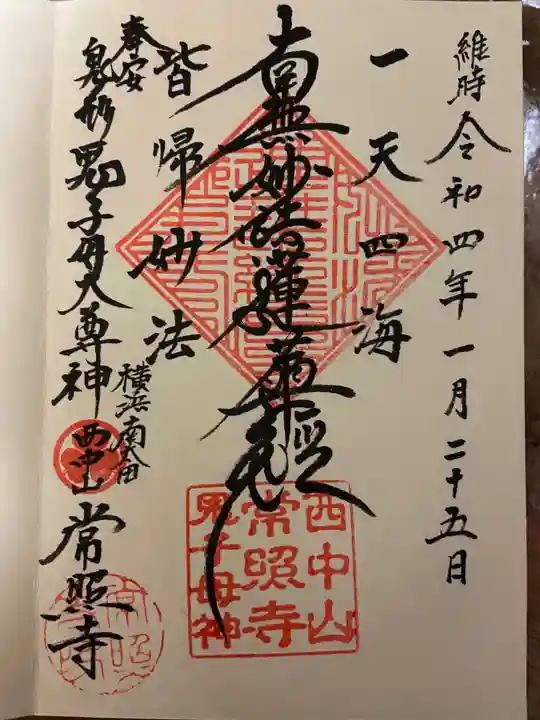 維時令和四年一月二十五日
一天四海
南無妙法蓮華経
皆帰妙法
奉安
鬼形鬼子母大尊神
横浜南太田
西中山
常照寺
西中山
常照寺
鬼子母神